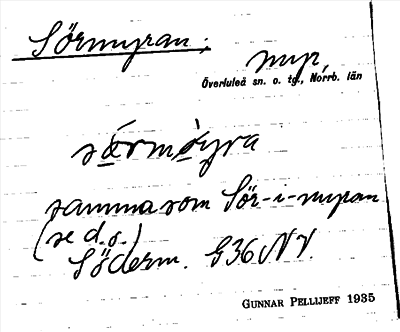 Sörmyran;
myr,
Överluleå sn. o. tg., Norrb. län
sármòyra
samma som Sör-i-myran
(se d.o.)
Söderm. G36NV.
GUNNAR PELLIJEFF 1935